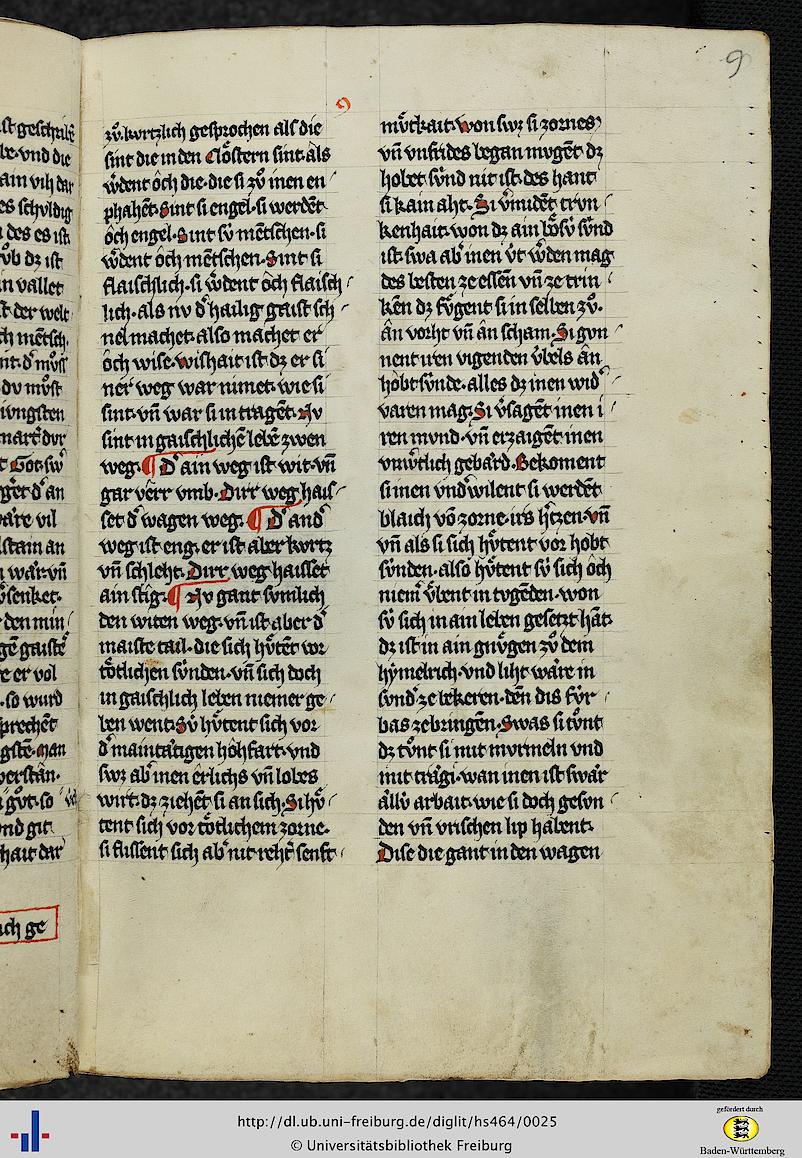 9
9
zů. kurtzlich gesprochen als die
sint die in den Clo̊stern sint. als
w̾dent o̊ch die. die si zů inen en
phahēt. Sint si engel. si werdēt
o̊ch engel. Sint sv́ mētschen. si
w̾dent o̊ch mētschen. Sint si
flaischlich. si w̾dent o̊ch flaisch
lich. als nv d̾ hailig gaist sch
nel machet. also machet er
o̊ch wise. wishait ist dz er si
ner weg war nimet. wie si
sint. vn̄ war si in tragēt. Nv
sint in gaischlichē lebē zwen
weg. ¶ D̾ ain weg ist wit. vn̄
gar verr vmb. Dirr weg hais
set d̾ wagen weg. ¶ D̾ and̾
weg ist eng. er ist aber kurtz
vn̄ schleht. Dirr weg haisset
ain stig. ¶ Nv gant sv́mlich
den witen weg. vn̄ ist aber d̾
maiste tail. die sich hv̊tēt vor
to̊tlichen sv́nden. vn̄ sich doch
in gaischlich leben niemer ge
ben went. Sv́ hv̊tent sich vor
d̾ maintätigen hohfart. vnd
swz ab̾ inen erlichs vn̄ lobes
wirt. dz ziehēt si an sich. Si hv̊
tent sich vor to̊tlichem zorne.
si flissent sich ab̾ nit reht̾ senft
mv̊tkait. won swz si zornes
vn̄ vnfrides began mvgēt dz
hobet sv́nd nit ist. des hant
si kain aht. Si v̾midēt trvn
kenhait. won dz ain bo̊sv́ sv́nd
ist. swa ab̾ inen v́t w̾den mag
des besten ze essēn vn̄ ze trin
kēn dz fv̊gent si in selben zů.
ân vorht vn̄ ân scham. Si gvn
nent iren vigenden v́bels ân
hobtsv́nde. alles dz inen wid̾
varen mag. Si v̾sagēt inen i
ren mvnd. vn̄ erzaigēt inen
vnw̾tlich gebärd. Bekoment
si inen vnd̾wilent si werdēt
blaich vō zorne. irs h̾tzen. vn̄
vn̄ als si sich hv̊tent vor hobt
sv́nden. also hv̊tent sv́ sich o̊ch
niem̾ v̊bent in tvgēden. won
sv́ sich in ain leben gesetzt hāt.
dz ist in ain gnv̊gen zů dem
hymelrich. vnd liht wäre in
svnd̾ ze bekeren. dēn dis fv́r
bas ze bringēn. Swas si tv̊nt
dz tv̊nt si mit mvrmeln vnd
mit trägi. wan inen ist swär
ällv́ arbait. wie si doch gesvn
den vn̄ vrischen lip habent.
Dise die gant in den wagen
http://dl.ub.uni-freiburg.de/diglit/hs464/0025
© Universitätsbibliothek Freiburg
gefördert durch
Baden-Württemberg